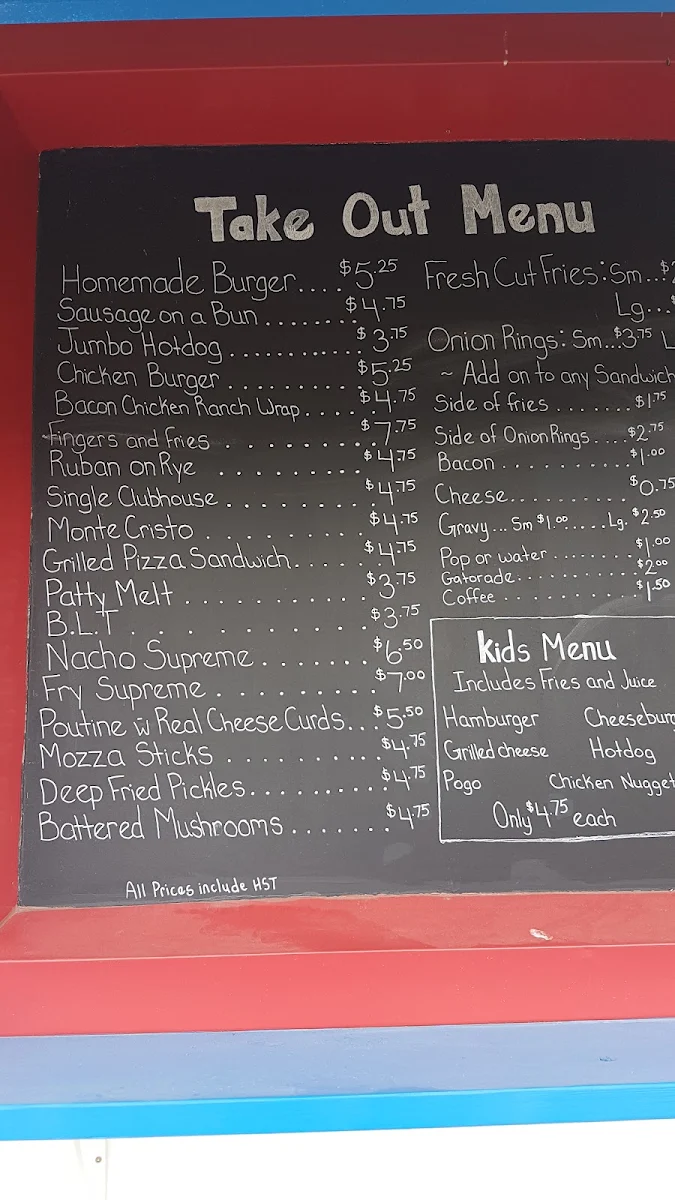 Take Out Menu
Homemade Burger.... $5.25
Sausage on a Bun....... $4.75
Jumbo Hotdog............ $3.75
Chicken Burger.......... $5.25
Bacon Chicken Ranch Wrap..... $4.75
~Fingers and Fries......... $7.75
Ruban on Rye.......... $4.75
Single Clubhouse......... $4.75
Monte Cristo.......... $4.75
Grilled Pizza Sandwich..... $4.75
Patty Melt........... $3.75
B.L.T............ $3.75
Nacho Supreme....... $6.50
Fry Supreme......... $7.00
Poutine w̄ Real Cheese Curds... $5.50
Mozza Sticks......... $4.75
Deep Fried Pickles........ $4.75
Battered Mushrooms....... $4.75
All Prices include HST
Fresh Cut Fries: Sm... $
Lg... $
Onion Rings: Sm...$3.75 L
~ Add on to any Sandwich
Side of fries....... $1.75
Side of Onion Rings.... $2.75
Bacon.......... $1.00
Cheese.......... $0.75
Gravy... Sm $1.00..... Lg. $2.50
Pop or water........ $1.00
Gatorade........... $2.00
Coffee........... $1.50
Kids Menu
Includes Fries and Juice
Hamburger Cheeseburg
Grilled cheese Hotdog
Pogo Chicken Nugget
Only $4.75 each